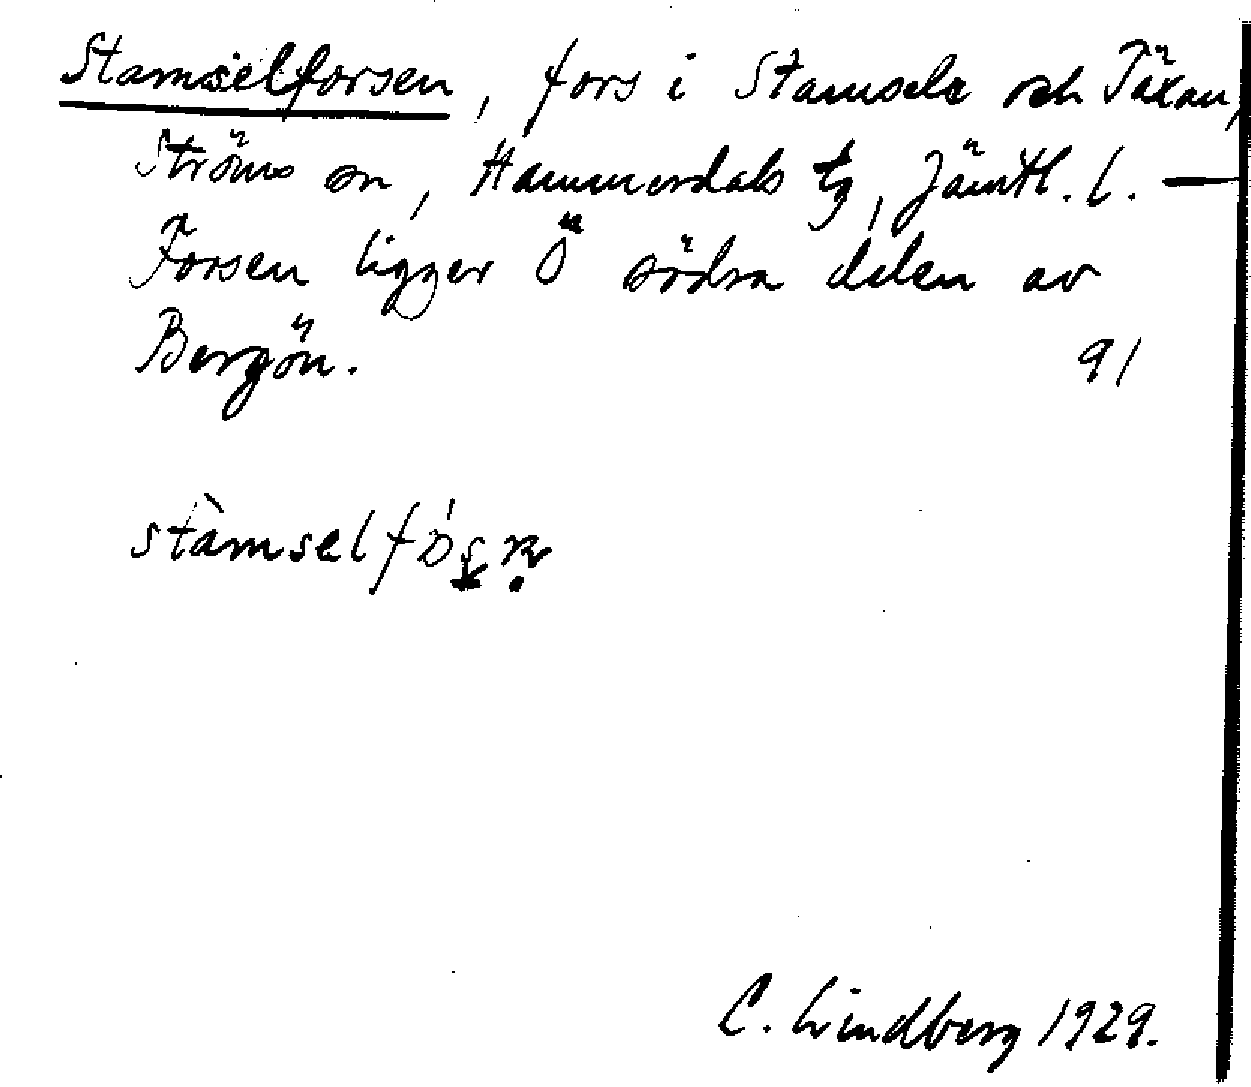 Stamselforsen, fors i Stamsele och Täxan,
Ströms sn, Hammerdals tg, Jämtl. l. —
Forsen ligger Ö södra delen av
Bergön. 91
C. Lindberg 1929.